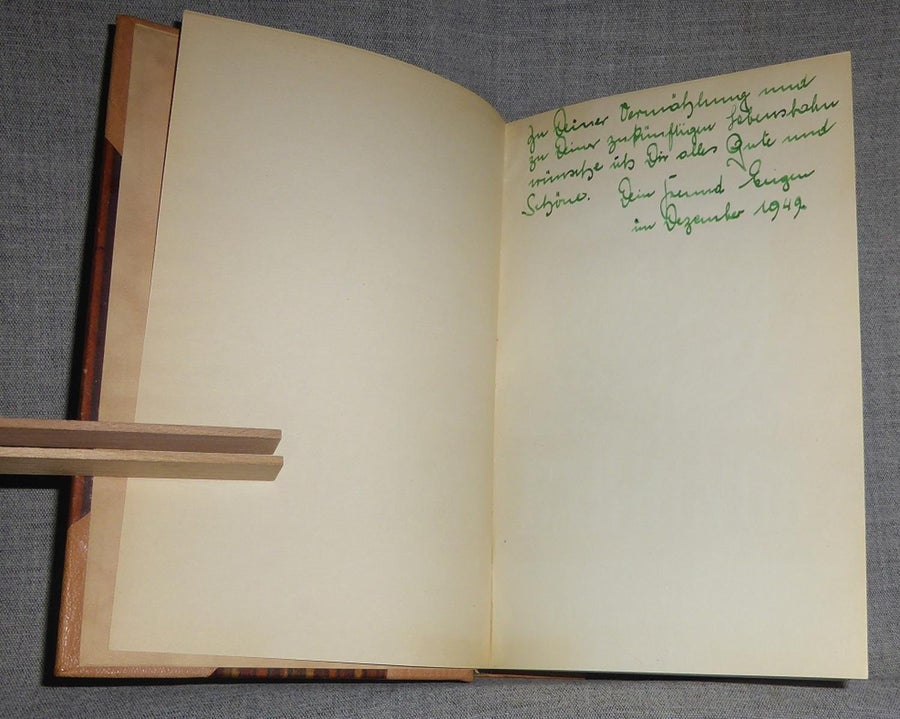 Zu Deiner Vermählung und
zu Deiner zukünftigen Lebensbahn
wünsche ich Dir alles Gute und
Schöne. Dein Freund Eugen
im Dezember 1949.